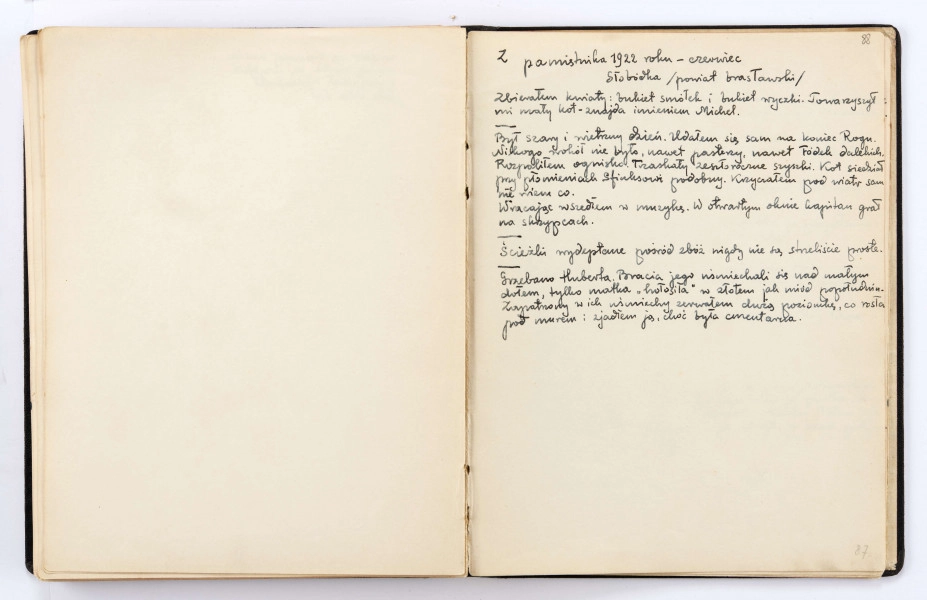 88
Z pamiętnika 1922 roku – czerwiec
Słobódka /powiat brasławski/
Zbierałem kwiaty: bukiet smółek i bukiet wyczki. Towarzyszył
mi mały kot-znajda imieniem Michel.
Był szary i wietrzny dzień. Udałem się sam na koniec Rogu.
Nikogo wokół nie było, nawet pasterzy, nawet łódek dalekich.
Rozpaliłem ognisko. Trzaskały zeszłoroczne szyszki. Kot siedział
przy płomieniach Sfinksowi podobny. Krzyczałem pod wiatr sam
nie wiem co.
Wracając wszedłem w muzykę. W otwartym oknie kapitan grał
na skrzypcach.
Ścieżki wydeptane pośród zbóż nigdy nie są strzeliście proste.
Grzebano Huberta. Bracia jego uśmiechali się nad małym
dołem, tylko matka „hołosiła" w złotem jak miód popołudniu.
Zapatrzony w ich uśmiechy zerwałem dużą poziomkę, co rosła
pod murem: zjadłem ją, choć była cmentarna.
87